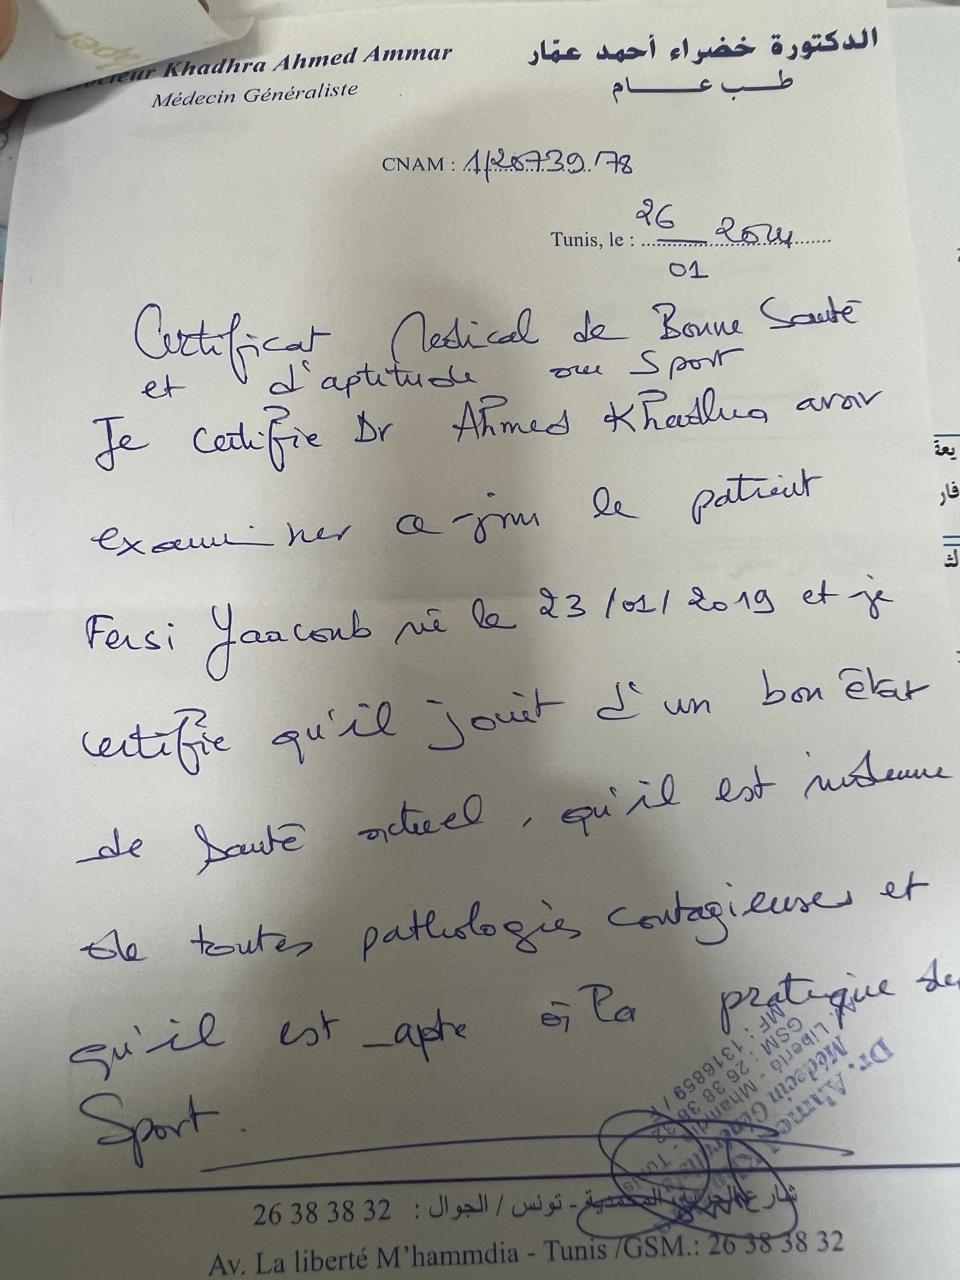 Docteur Khadhra Ahmed Ammar
Médecin Généraliste
الدكتورة خضراء أحمد عمّار
طب عام
CNAM : 1/20739/78
Tunis, le : 26 2024
01
Certificat Medical de Bonne Santé
et d'aptitude au Sport
Je certifie Dr Ahmed Khadhra avoir
examiner ce jour le patient
Fersi Yaacoub né le 23/01/2019 et je
certifie qu'il jouit d'un bon état
de santé actuel, qu'il est indemne
de toutes pathologies contagieuses et
qu'il est apte à la pratique de
Sport.
Dr. Ahmed
Médecin Généraliste
Liberté - Mhamdia - Tunis
GSM : 26 38 38 32
MF : 1316859 /
شارع الحرية المحمدية - تونس / الجوال : 32 38 38 26
Av. La liberté M'hammdia - Tunis /GSM.: 26 38 38 32